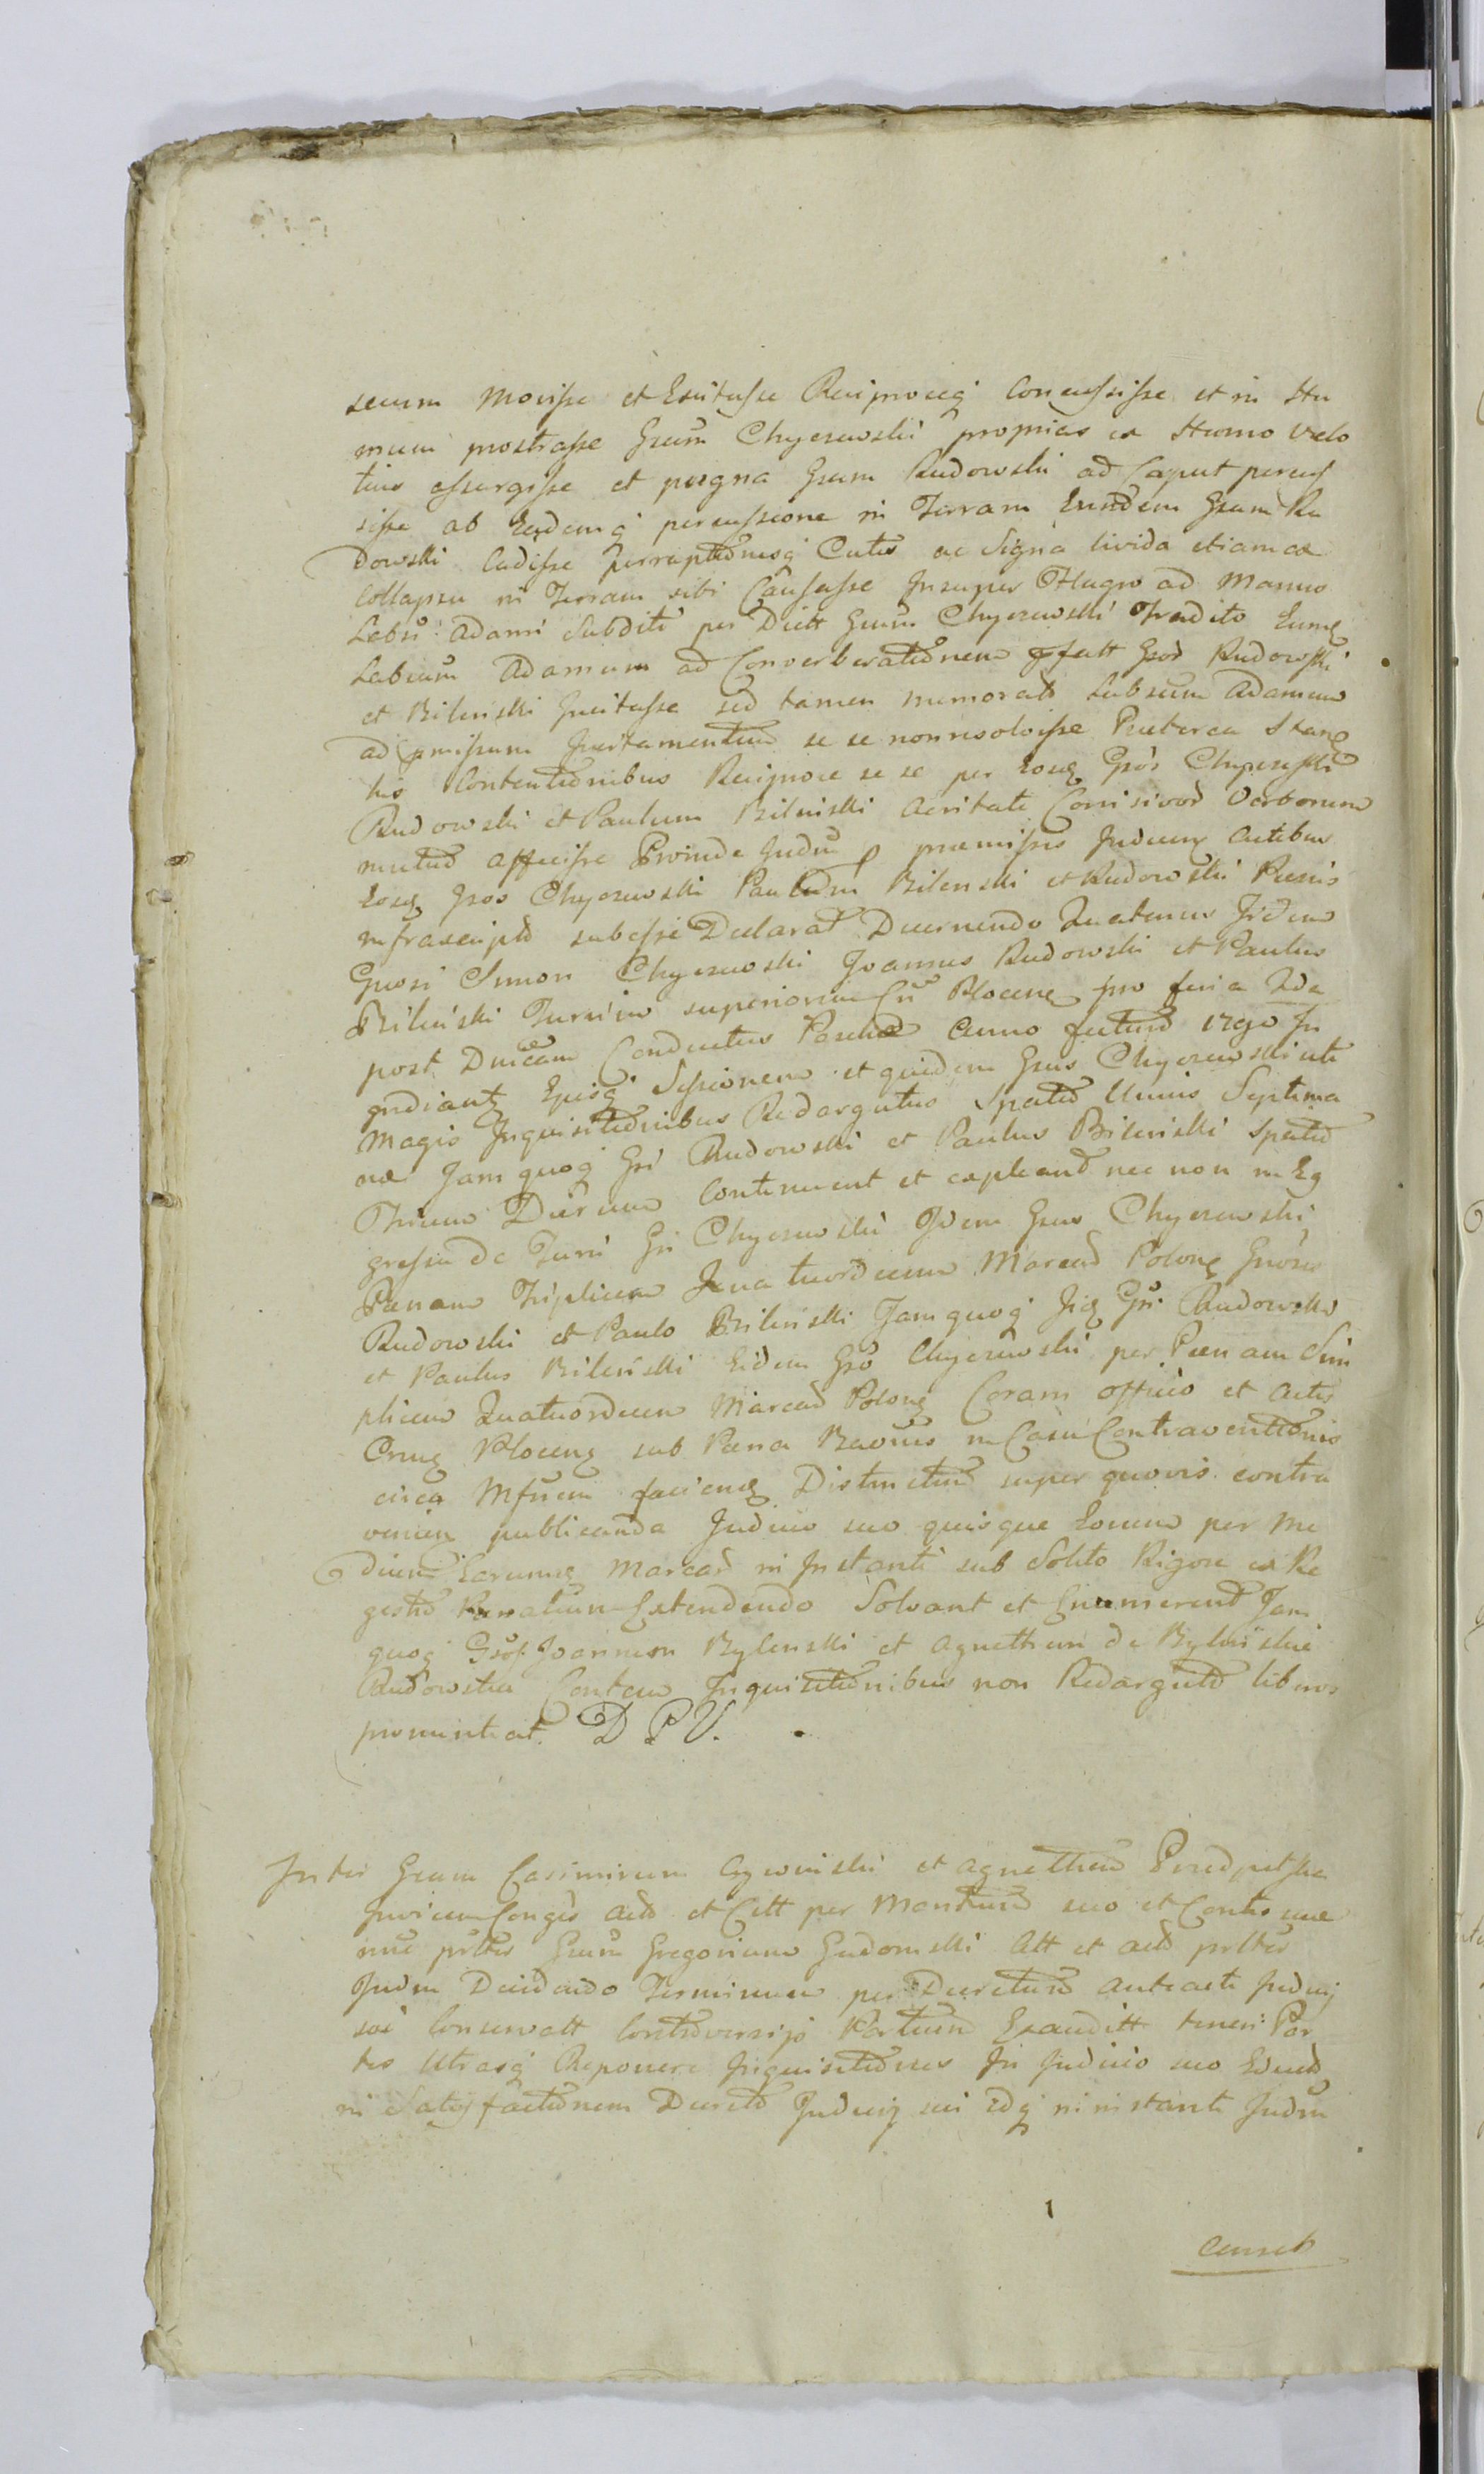 secum Movisse et Excitasse Reciproceq. Concussisse et in Hu
mum prostrasse Gsum Chyczewski propriae ex Humo Velo
tius assurgisse et pugna Gsum Rudowski ad Caput percus
sisse ab Eademq. percussione in Terram Eundem Gsum Ru
dowski Cadisse perruptionesq. Cutis ac Signa livida etiam ex
Collapsu in Terram sibi Causasse Insuper Flagro ad Manus
Labsi Adami Subditi per Dictt Gsum Chyczewski Tradito Eumq
Labsum Adamum ad Converberationem pfatt Gsor Rudowski
et Bilinski Incitasse sed tamen memorato Labsum Adamum
ad pmissum Incitamentum se se non resolvisse Praeterea Stan
bis Contentionibus Reciproce se se per Eosq Gsos Chyczewski
Rudowski et Paulum Bilinski acritate Verborum
mutuo affecisse Proinde Judm p praemissis Judicij Actibus
Eosq Gsos Chyczewski Paulum Bilinski et Rudowski Poenis
infrascripto subesse Declarat Decernendo Quatenus Iidem
Gnosi Simon Chyczewski Joannes Rudowski et Paulus
Bilinski Turrim superiorem Cri Plocens pro feria 2da
post Dnicam Conductus Paschae Anno futuro In
grediantq Ejusq. Sessionem et quidem Gsus Chyczewski uti
magis Inquisitionibus Redargutus Spatio Unius Septima
nae Jam quoq. Gsi Rudowski et Paulus Bilinski Spatio
Trium Dierum Continuent et expleant nec non in Eg
gressu de Turri Gsi Chyczewski Idem Gsus Chyczewski
Paenam Triplicem Quatuordecim Marcaro Polonq Gnosis
Rudowski et Paulo Bilinski Jam quoq. Iiq Gsi Rudowski
et Paulus Bilinski Eidem Gso Chyczewski per Poenam Sim
plicem Quatuordecim Marcar Polonq Coram officio et Actis
Crnq Plocenq sub Paena Bannis in Casu Contraventionis
circa Mfnem faciendq Districtum super quovis contra
venien publicanda Judicio suo quisque Eorum per Me
dium Earumq Marcar in Instanti sub Solito Rigore ex Re
gestro Paenalium Extendendo Solvant et Enumerent Jam
quoq. Gsos Joannem Bylinski et Agnethem de Bylinskie
Rudowska Contem Inquisitionibus non Redarguto liberos
pronunciat. D P V.

Inter Gsum Casimirum et Agnethem
Invicem Congs Acto et Citt per Mandum suo et Contis
nne prltis Gsum Gregorium Gadomski Att et acto prltis
Judm Decidendo Terminum per Decretum anteacti Judicij
sui Conservatt Controversijs Partium Exauditt teneri Par
tes Utrasq. Reponere Inquisitiones In Judicio suo
in Satisfactionem Decreto Judicij sui idq. in instanti Judm
Censet